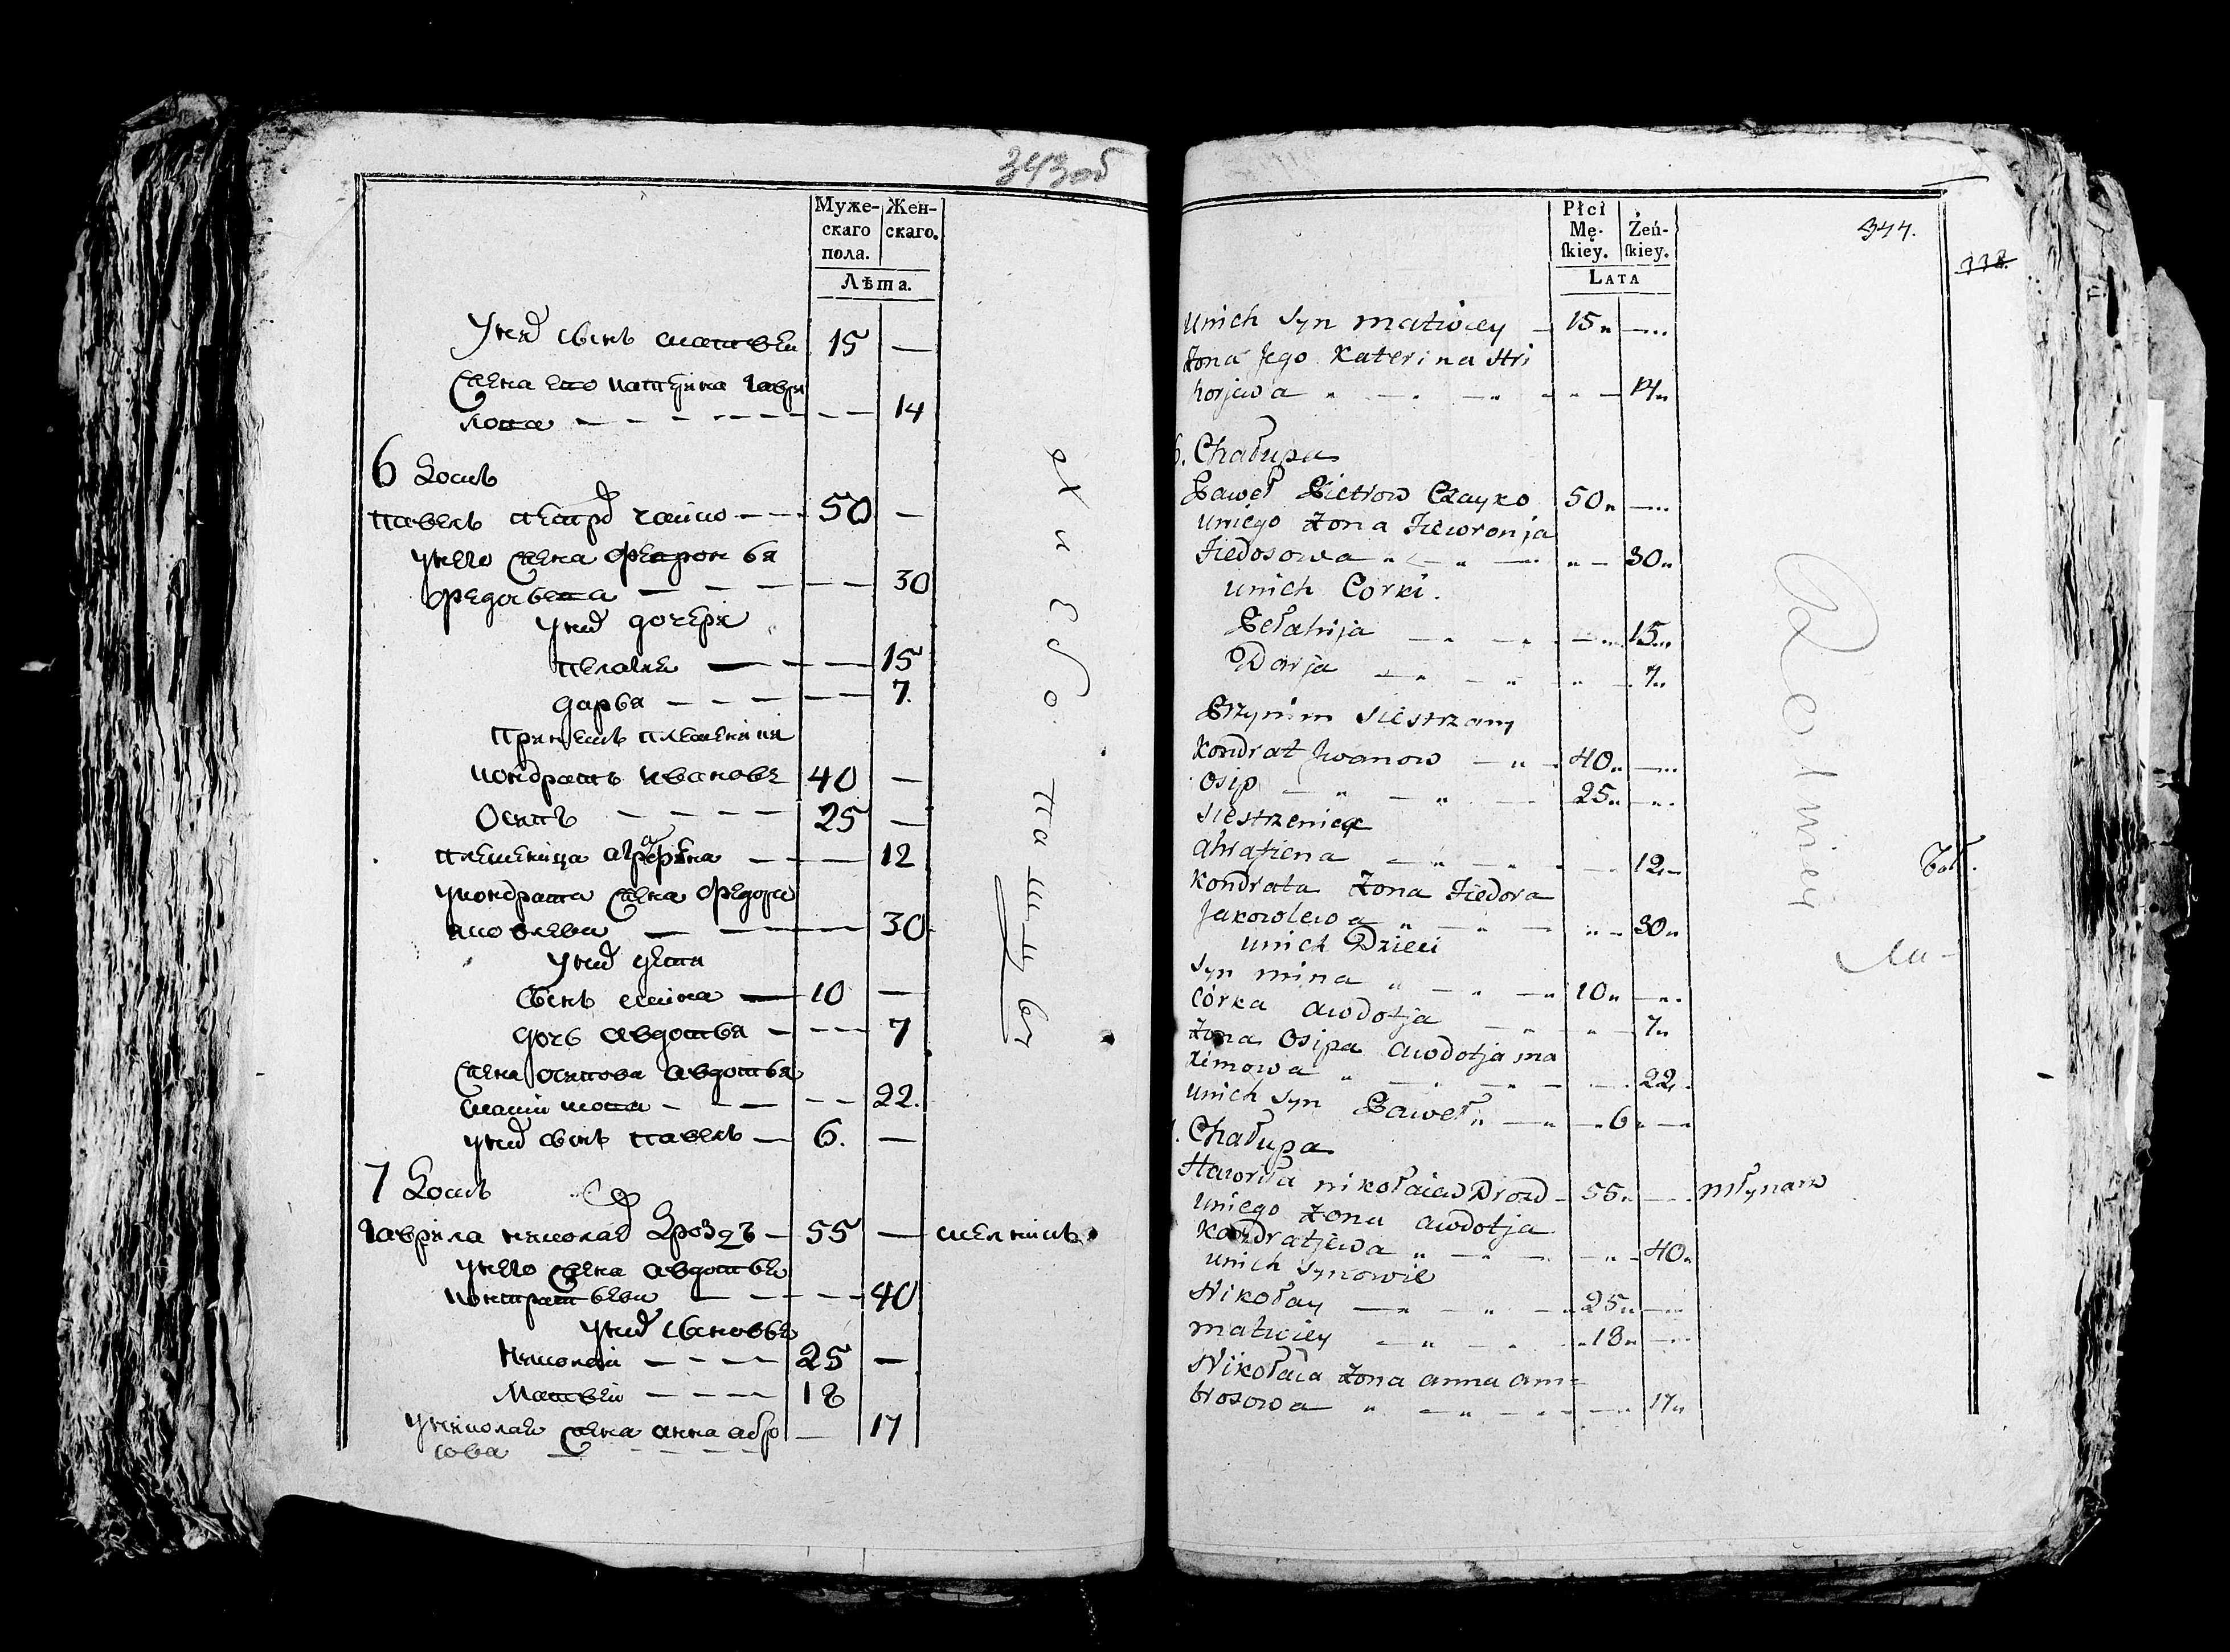 343об
Муже- Жен-
скаго скаго.
пола.
Лѣта.
У них сынъ матвей 15 —
Жена его катерина гаври
лова — — — — 14
6 Домъ
павелъ петров чайко — — 50 —
у него жена февронья
федосьева — — — — 30
У них дочери
пелагея — — — 15
дарья — — — — 7.
При немъ племеники
кондратъ ивановъ 40 —
Осипъ — — — — 25 —
племеница аграфена — — — 12
у кондрата жена федора
яковлева — — — 30
У них дети
сынъ мина — 10 —
дочь авдотья — — — 7
Жена осипова авдотья
— — — — — 22.
у них сынъ павелъ — 6. —
7 Домъ
гаврила николаев Дроздъ — 55 — мелникъ
у него жена авдотья
контратьева — — — — 40
у них сыновья
николай — — — — 25 —
Матвей — — — — 18
у николая жена анна абро — 17
сова — — — —
Płci Żeń-
Mę- ſkiey.
ſkiey.
LATA
344.
338.
unich Syn matwiey — 15„ —„„
żona Jego Katerina Hri
horjewa „ —„ —„ „ — 14„
6. Chałupa
Paweł Pietrow Czayko 50„ —„„
uniego żona Fiewronja
Fiedosowa „ — „ — „ — 30„
unich Corki.
Pełahija —„ —„ —„ 15„
Darja —„ —„ „ 7„
Przynim siestrzany
Kondrat Jwanow — „ — 40„ —„„
Osip — „ — „ — 25„ —„„
siestrzenica
ahrafiena —„ —„ — 12„
Kondrata żona Fiedora
Jakowlewa „ —„ — „ — 30„
unich Dzieci
syn mina „ —„ —„ 10„ —„„
córka awdotja —„ „ — 7„
żona Osipa awdotja ma
ximowa „ —„ —„ — 22„
unich syn Paweł „ —„ — „ 6„ —„
Chałupa
Hawriła nikołaiew Drozd — 55„ —„ młynarz
uniego żona awdotja
Kondratjewa „ —„ — „ — 40„
unich synowie
Nikołay —„ —„ —„ 25„ —„„
matwiey —„ —„ —„ 18„ —„„
Nikołaia żona anna am=
brosowa „ —„ —„ — 17„